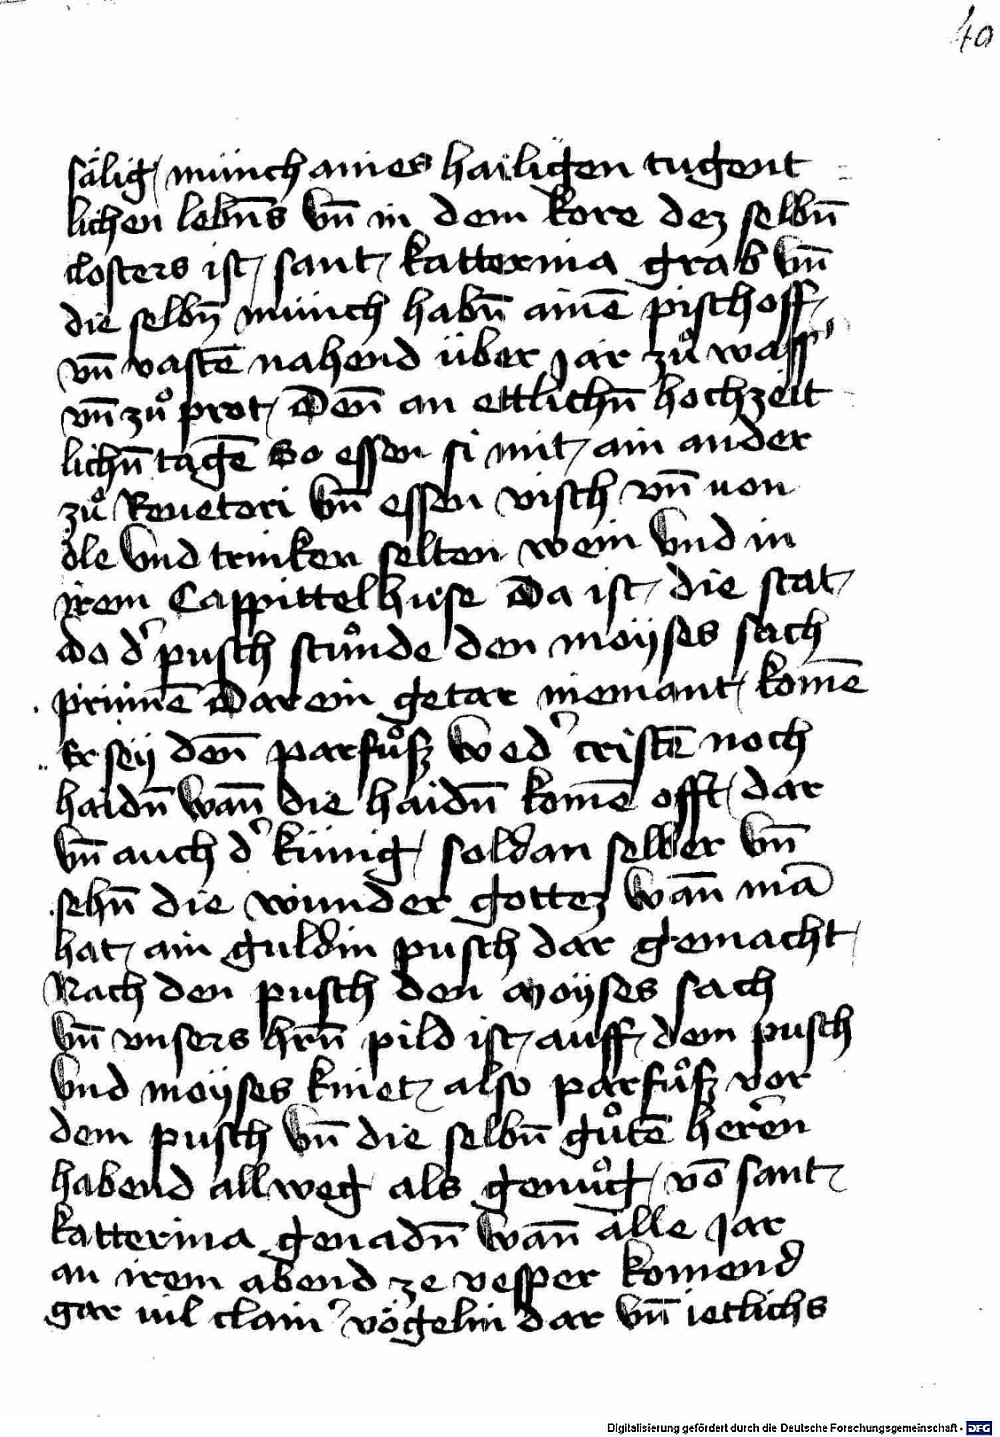 40
sälig münch aines hailigen tugent
lichen lebn̄s vn̄ in dem kore dez selbn̄
closters ist sant katterina grab vn̄
die selbn̄ münch habn̄ ainē pischoff
vn̄ vastē nahend über jar zuͦ wasser
vn̄ zuͦ prot Den̄ an ettlichn̄ hochzeit
lichn̄ tagē So essen si mit ain ander
zuͦ Reuetori vn̄ essen visch vn̄ von
öle vnd trinken selten wein vnd in
irem Cappittelhuse Da ist die stat
do d' pusch stuͦnde den moÿses sach
prinnē Darein getar niemant komē
Er seÿ den̄ parfuͦsz wed' cristē noch
haidn̄ wan̄ die haidn̄ komē offt dar
vn̄ auch d' künig soldan selber vn̄
sehn̄ die wunder gottez wan̄ mā
hat ain guldin pusch dar gemacht
Nach den pusch den Moÿses sach
vn̄ vnsers hrn̄ pild ist auff dem pusch
vnd moÿses kniet also parfuͦsz vor
dem pusch vn̄ die selbn̄ guͦtē herēn
habend allweg als genuͦg vō sant
katterina genadn̄ wan̄ alle jar
an irem abend ze vesper komend
gar vil clain' vögelin dar vn̄ ietlichs
Digitalisierung gefördert durch die Deutsche Forschungsgemeinschaft - DFG